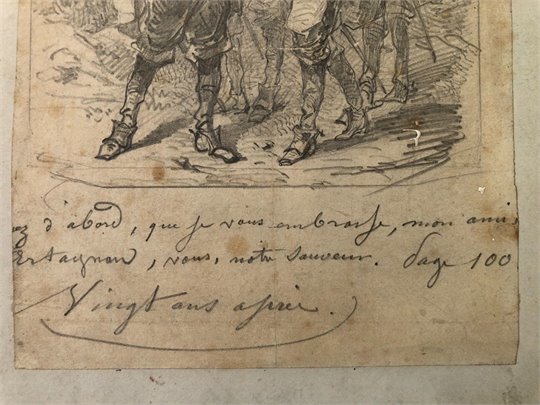 ez d'abord, que je vous embrasse, mon ami,
Artagnan, vous, notre sauveur. Page 100
Vingt ans après.